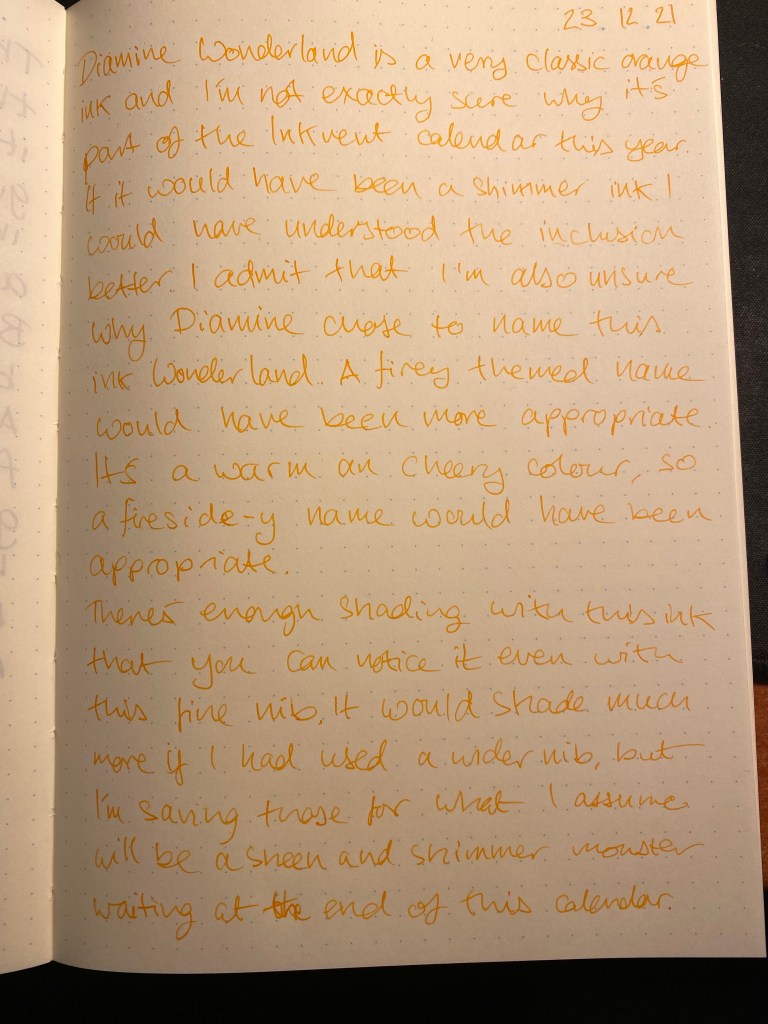 23 12 21
Diamine Wonderland is a very classic orange
ink and I'm not exactly sure why it's
part of the Inkvent calendar this year.
If it would have been a shimmer ink I
would have understood the inclusion
better. I admit that I'm also unsure
why Diamine chose to name this
ink Wonderland. A firey themed name
would have been more appropriate.
It's a warm an cheery colour, so
a fireside-y name would have been
appropriate.
There's enough shading with this ink
that you can notice it even with
this fine nib. It would shade much
more if I had used a wider nib, but
I'm saving those for what I assume
will be a sheen and shimmer monster
waiting at the end of this calendar.